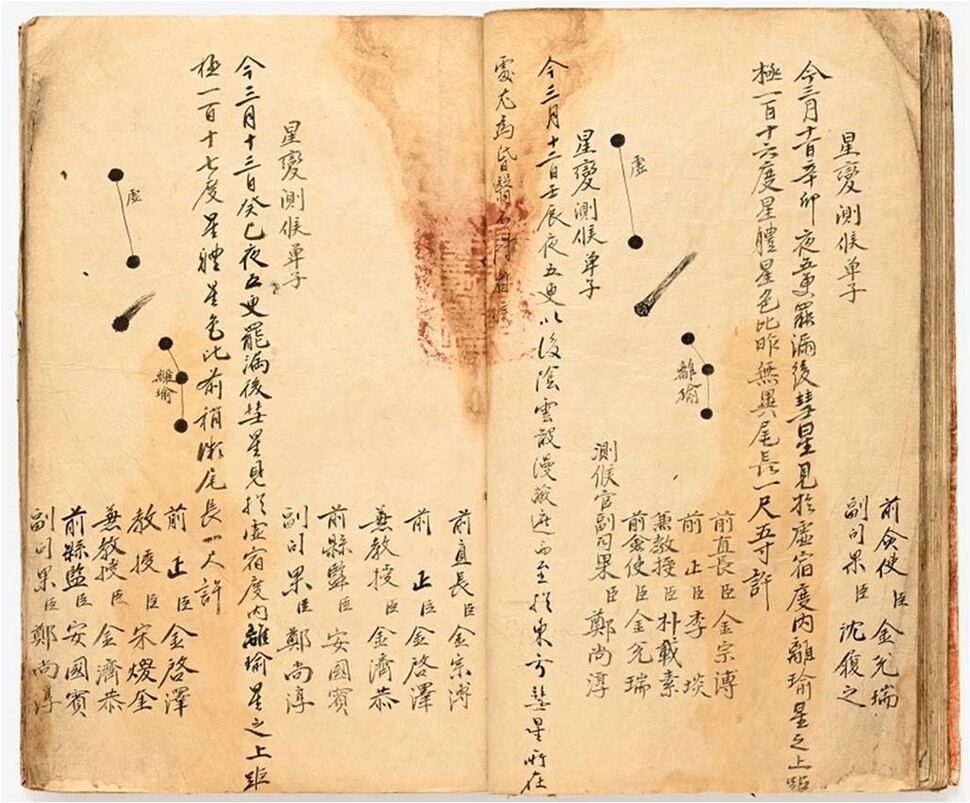 前僉使臣 金兌瑞
副司果臣 沈履之
星變測候单子
今三月十一日辛卯夜五更罷漏後彗星見於虛宿度內離瑜星之上距
極一百十六度星體星色比昨無異尾長一尺五寸許
虛
離瑜
前直長臣 金宗溥
前 正臣 李埮
兼教授臣 朴載素
前僉使臣 金兌瑞
測候官副司果臣 鄭尚淳
星變測候单子
今三月十二日壬辰夜五更以後陰雲散漫蔽遮而至於東方彗星所在
處尤爲昏翳不得看候
前直長臣 金宗溥
前 正臣 金啓澤
兼教授臣 金濟恭
前縣監臣 安國賓
副司果臣 鄭尚淳
星變測候单子
今三月十三日癸巳夜五更罷漏後彗星見於虛宿度內離瑜星之上距
極一百十七度星體星色比前稍微尾長一尺許
虛
離瑜
前 正臣 金啓澤
教授臣 宋
兼教授臣 金濟恭
前縣監臣 安國賓
副司果臣 鄭尚淳